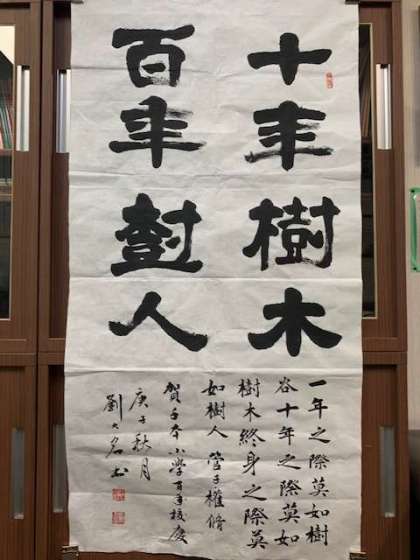 十年樹木
百年樹人
一年之際莫如樹
谷十年之際莫如
樹木終身之際莫
如樹人 管子權脩
賀 小學百年校慶
庚子秋月
劉大名书